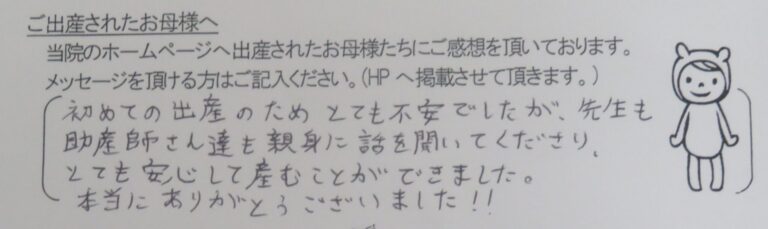 ご出産されたお母様へ
当院のホームページへ出産されたお母様たちにご感想を頂いております。
メッセージを頂ける方はご記入ください。(HPへ掲載させて頂きます。)
初めての出産のためとても不安でしたが、先生も
助産師さん達も親身に話を聞いてくださり、
とても安心して産むことができました。
本当にありがとうございました!!